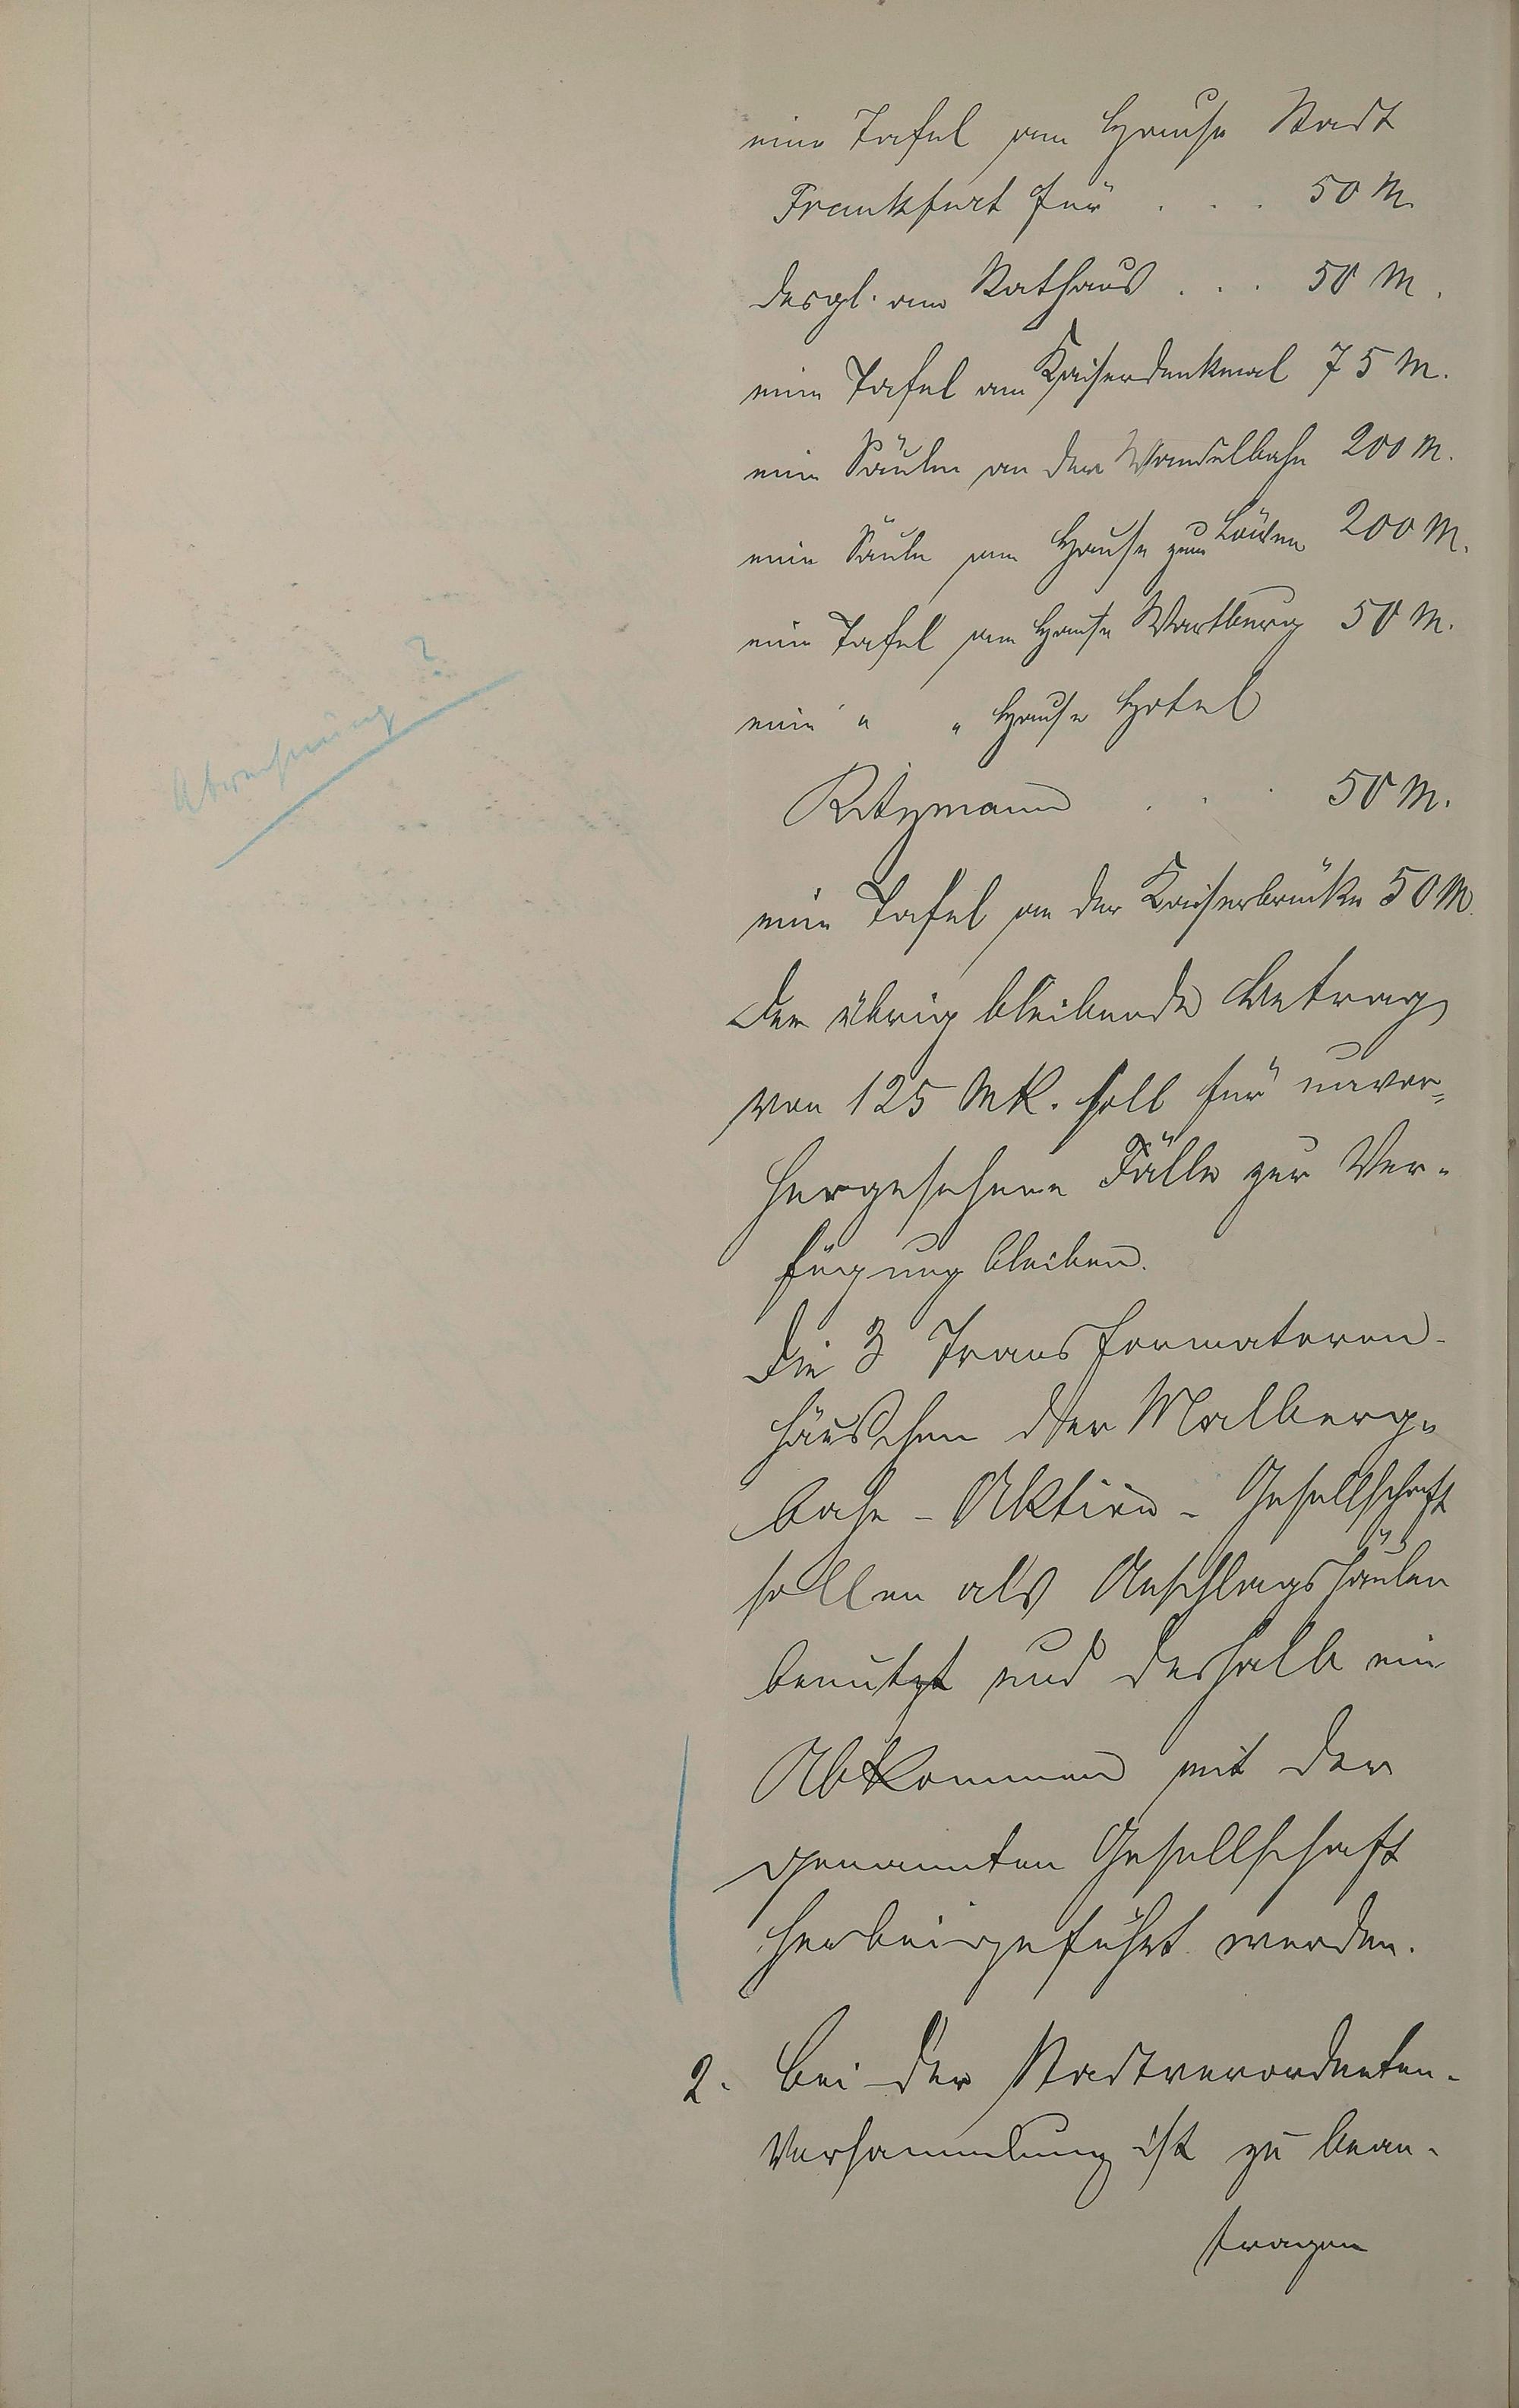 eine Tafel am Hause Stadt
Frankfurt für . . . 50 M.
desgl. am Rathaus . . . 50 M.
eine Tafel am Kaiserdenkmal 75 M.
eine Säule an der Wandelbahn 200 M.
eine Säule am Hause zum Löwen 200 M.
eine Tafel am Hause Wartburg 50 M.
eine " " Hause Hotel
Ritzmann . . . 50 M.
eine Tafel an der Kaiserbrücke 50 M.
Der übrig bleibende Betrag
von 125 Mk. soll für unvor=
hergesehene Fälle zur Ver-
fügung bleiben.
Die 3 Transformatoren-
häuschen der Malberg-
bahn - Aktien - Gesellschaft
sollen als Anschlagssäulen
benutzt und deshalb ein
Abkommen mit der
genannten Gesellschaft
herbeigeführt werden.
2. Bei der Stadtverordneten-
Versammlung ist zu bean-
tragen
Abrechnung?